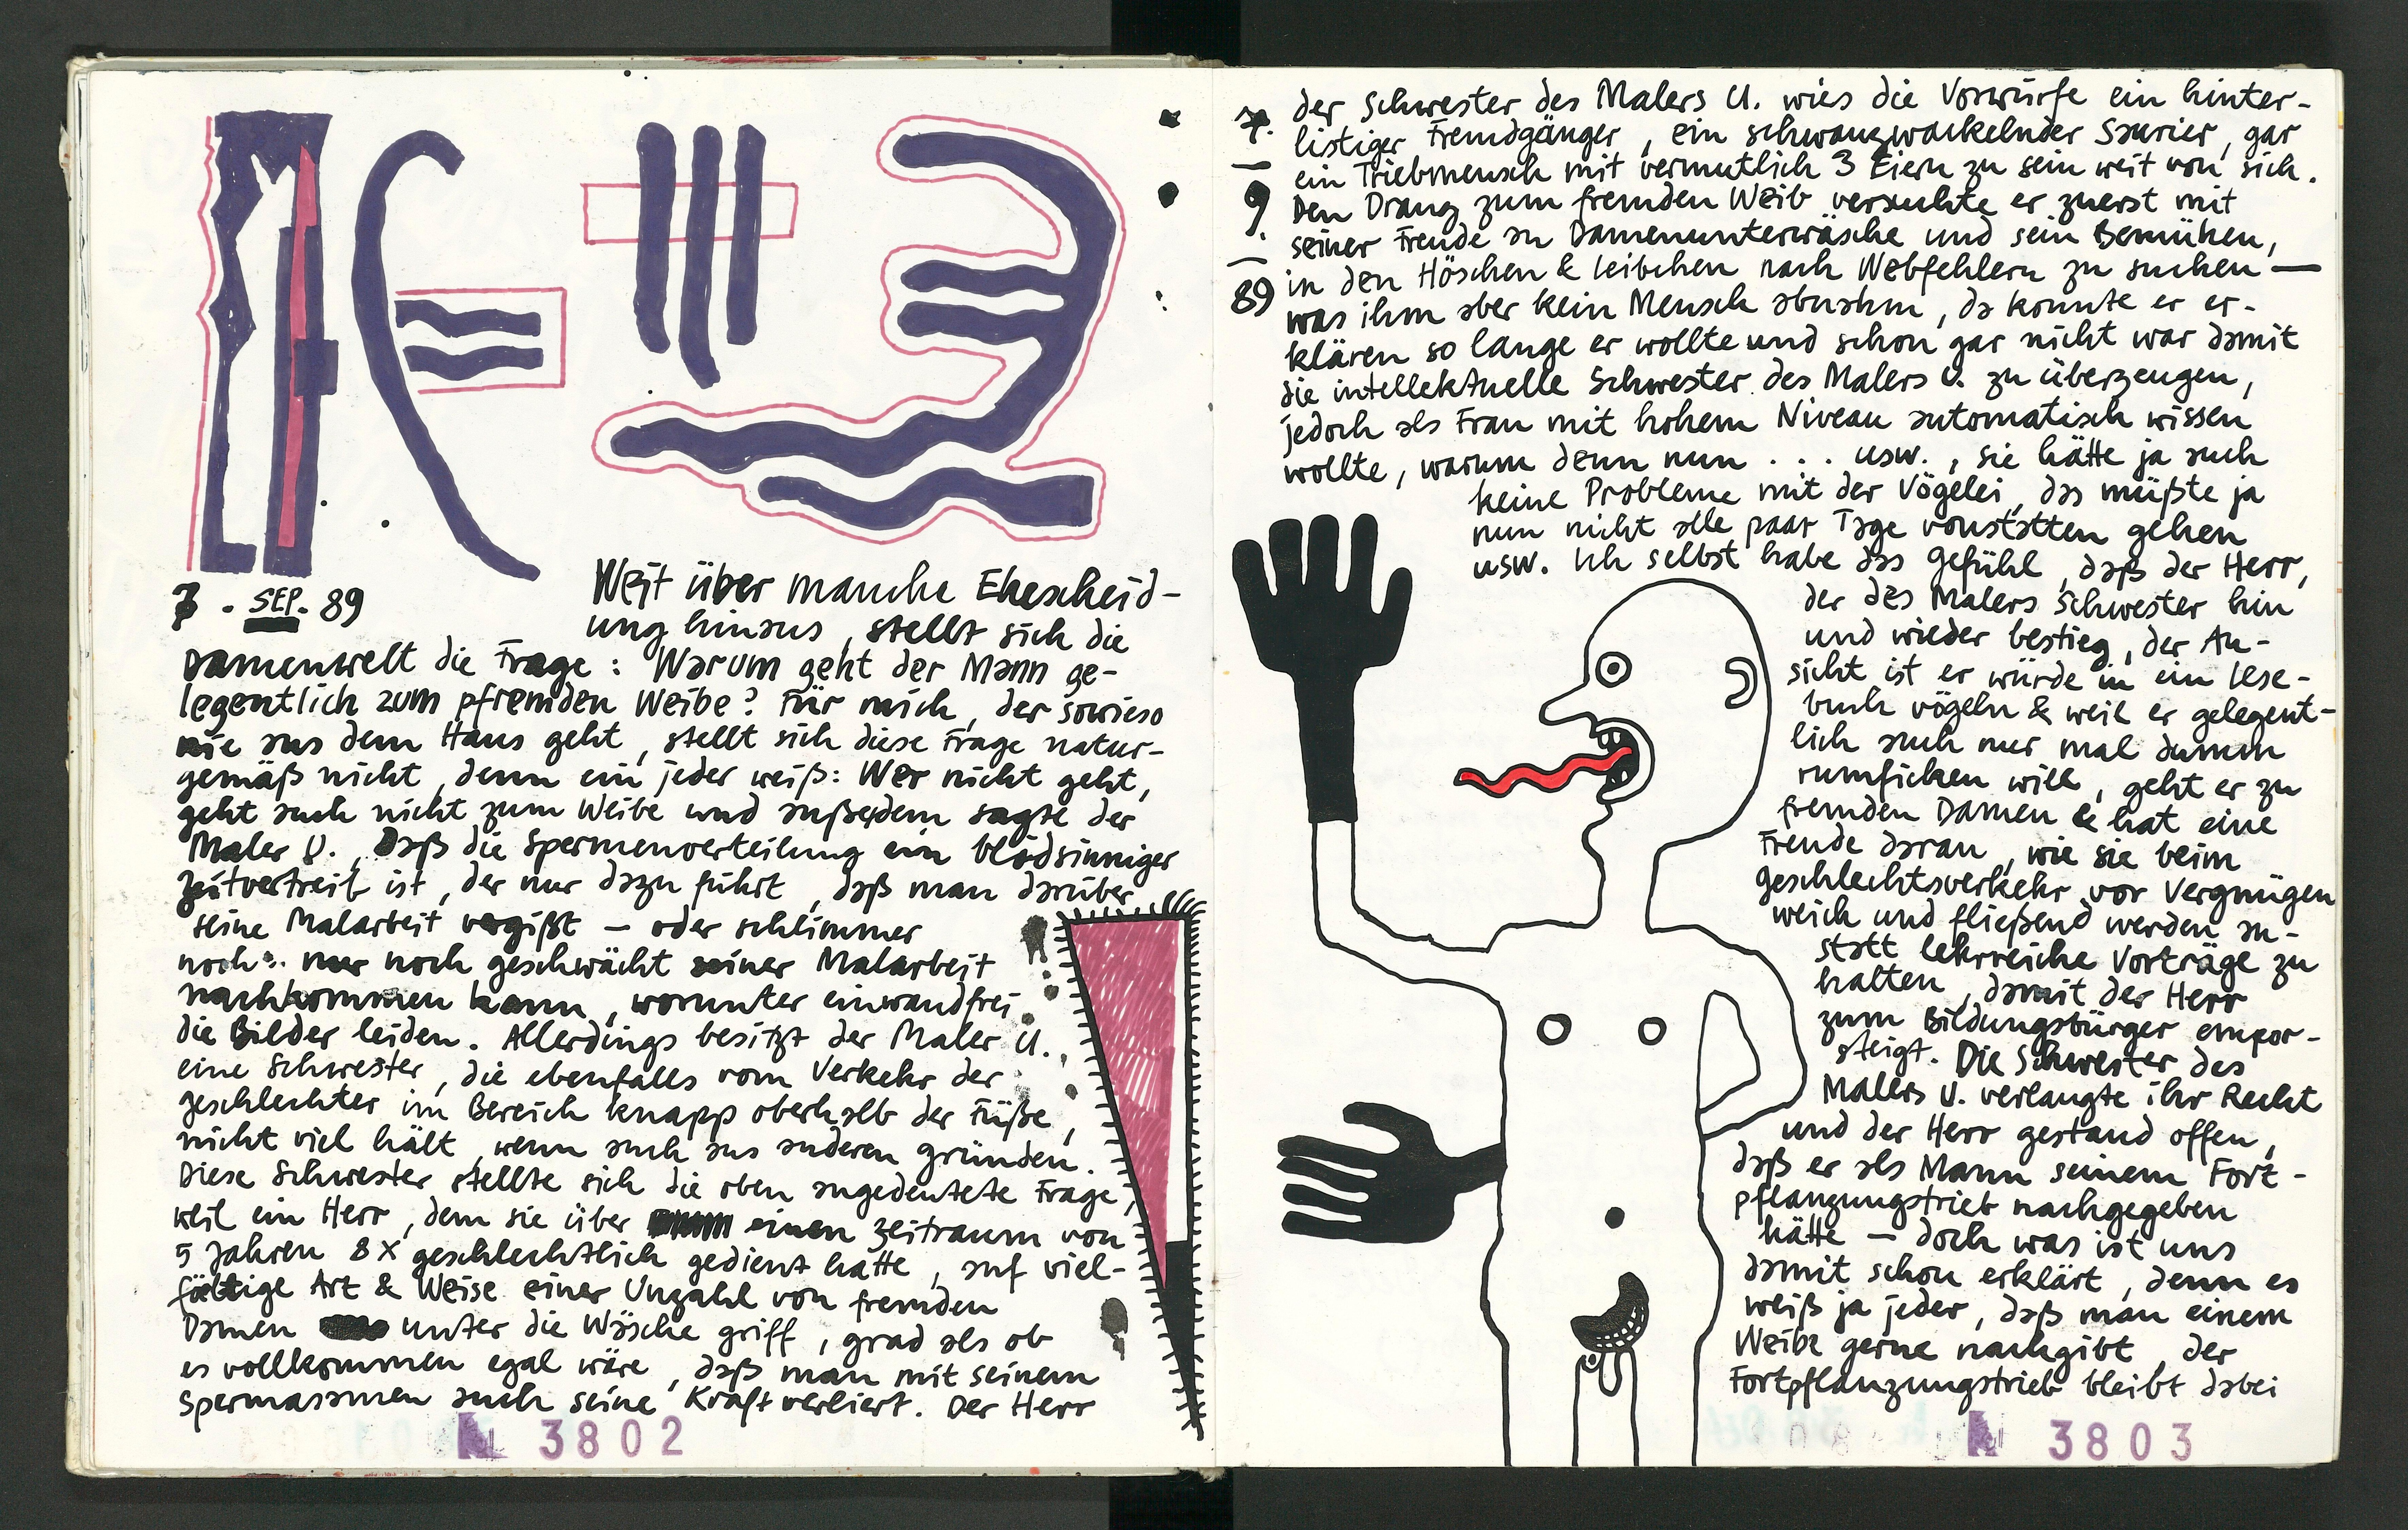 7. SEP. 89
Weit über manche Ehescheid-
ung hinaus, stellt sich die
Damenwelt die Frage: Warum geht der Mann ge-
legentlich zum pfremden Weibe? Für mich, der sowieso
nie aus dem Haus geht, stellt sich diese Frage natur-
gemäß nicht, denn ein jeder weiß: Wer nicht geht,
geht auch nicht zum Weibe und außerdem sagte der
Maler U., Daß die Spermenverteilung ein blödsinniger
Zeitvertreib ist, der nur dazu führt, daß man darüber
seine Malarbeit vergißt – oder schlimmer
noch: nur noch geschwächt seiner Malarbeit
nachkommen kann, worunter einwandfrei
die Bilder leiden. Allerdings besitzt der Maler U.
eine Schwester, die ebenfalls vom Verkehr der
Geschlechter im Bereich knapp oberhalb der Füße,
nicht viel hält, wenn auch aus anderen Gründen.
Diese Schwester stellte sich die oben angedeutete Frage,
weil ein Herr, dem sie über einen Zeitraum von
5 Jahren 8X geschlechtlich gedient hatte, auf viel-
fältige Art & Weise einer Unzahl von fremden
Damen unter die Wäsche griff, grad als ob
es vollkommen egal wäre, daß man mit seinem
Spermasamen auch seine Kraft verliert. Der Herr
N 3802
7.
–
9.
–
89
der Schwester des Malers U. wies die Vorwürfe ein hinter-
listiger Fremdgänger, ein schwanzwackelnder Saurier, gar
ein Triebmensch mit vermutlich 3 Eiern zu sein weit von sich.
Den Drang zum fremden Weib versuchte er zuerst mit
seiner Freude an Damenunterwäsche und sein Bemühen,
in den Höschen & Leibchen nach Webfehlern zu suchen —
was ihm aber kein Mensch abnahm, da konnte er er-
klären so lange er wollte und schon gar nicht war damit
die intellektuelle Schwester des Malers U. zu überzeugen,
jedoch als Frau mit hohem Niveau automatisch wissen
wollte, warum denn nun ... usw., sie hätte ja auch
keine Probleme mit der Vögelei, das müßte ja
nun nicht alle paar Tage vonstatten gehen
usw. Ich selbst habe das Gefühl, daß der Herr,
der des Malers Schwester hin
und wieder bestieg, der An-
sicht ist er würde in ein Lese-
buch vögeln & weil er gelegent-
lich auch nur mal dumm
rumficken will, geht er zu
fremden Damen & hat eine
Freude daran, wie sie beim
Geschlechtsverkehr vor Vergnügen
weich und fließend werden an-
statt lehrreiche Vorträge zu
halten, damit der Herr
zum Bildungsbürger empor-
steigt. Die Schwester des
Malers U. verlangte ihr Recht
und der Herr gestand offen,
daß er als Mann seinem Fort-
pflanzungstrieb nachgegeben
hätte – doch was ist uns
damit schon erklärt, denn es
weiß ja jeder, daß man einem
Weibe gerne nachgibt, der
Fortpflanzungstrieb bleibt dabei
N 3803